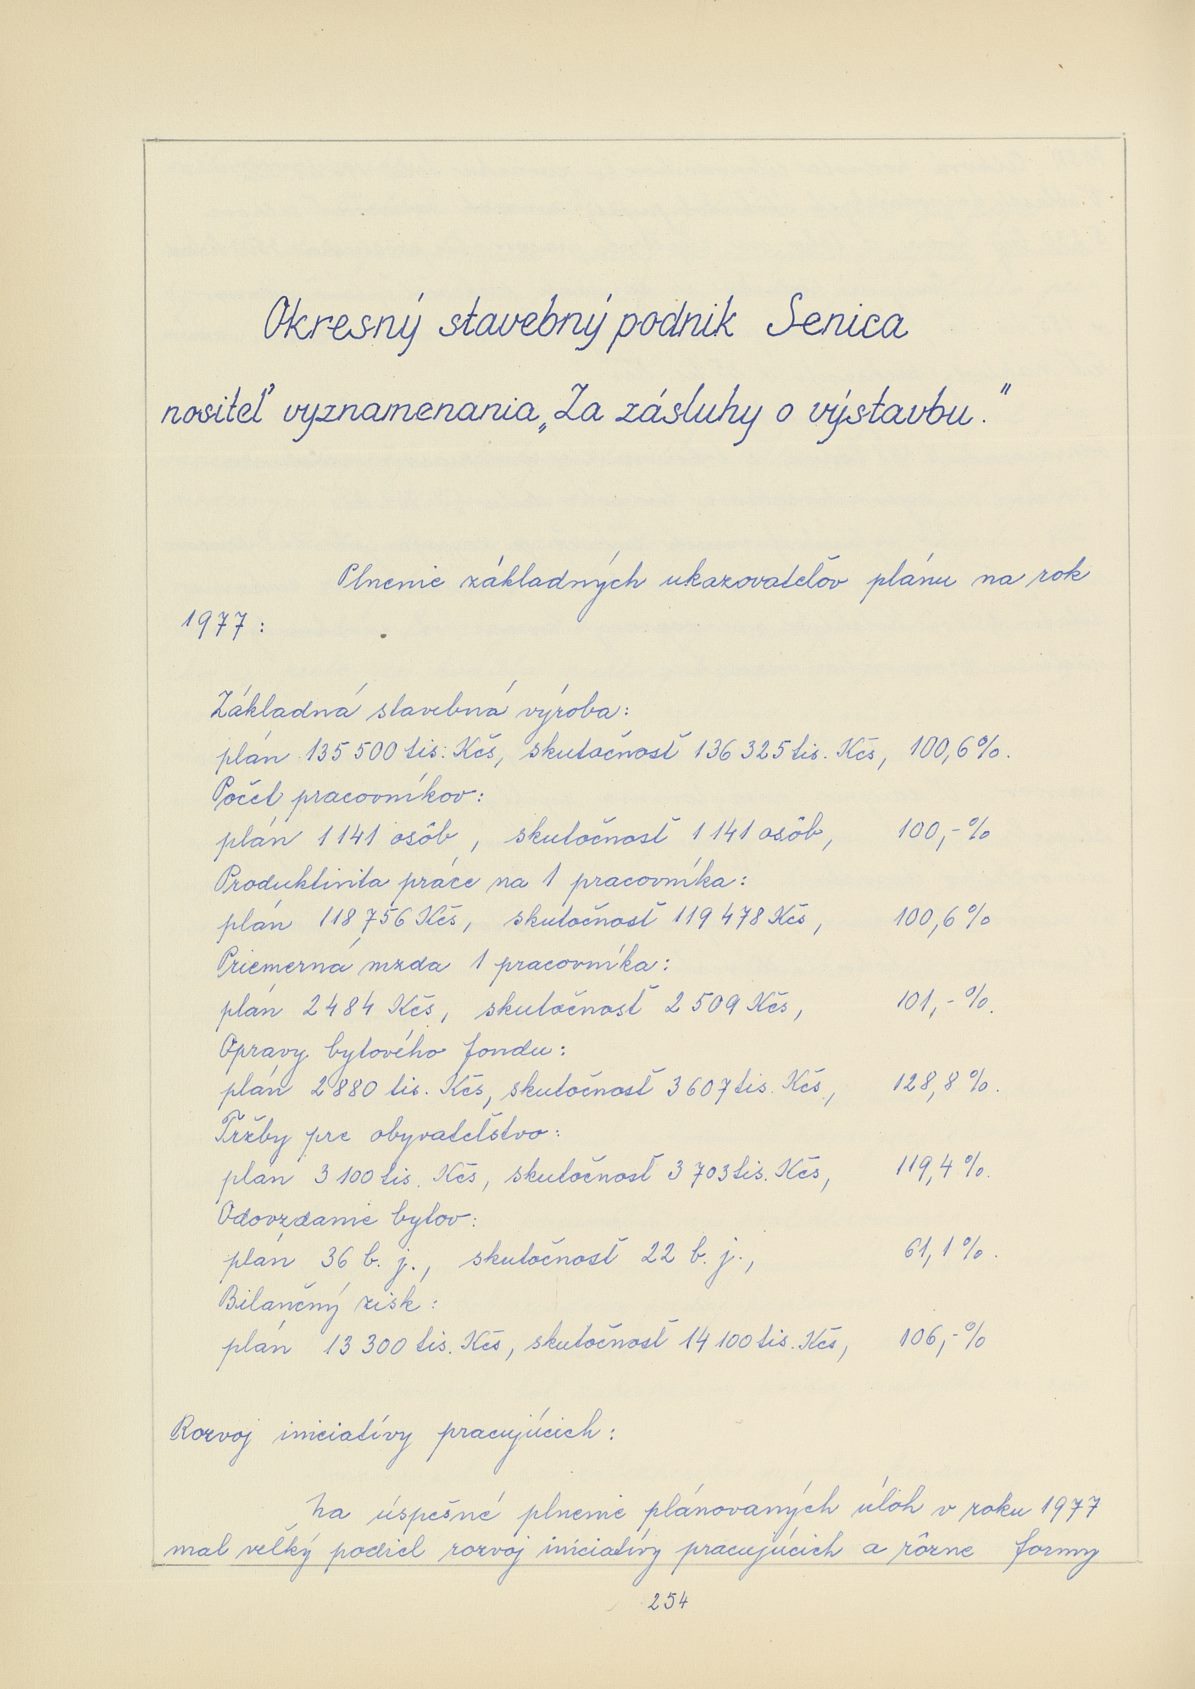 Okresný stavebný podnik Senica
nositeľ vyznamenania „Za zásluhy o výstavbu."
Plnenie základných ukazovateľov plánu na rok
1977 :
Základná stavebná výroba:
plán 135 500 tis. Kčs, skutočnosť 136 325 tis. Kčs, 100,6 %.
Počet pracovníkov:
plán 1 141 osôb , skutočnosť 1 141 osôb, 100,- %
Produktivita práce na 1 pracovníka:
plán 118 756 Kčs, skutočnosť 119 478 Kčs, 100,6 %
Priemerná mzda 1 pracovníka:
plán 2 484 Kčs, skutočnosť 2 509 Kčs, 101,- %.
Opravy bytového fondu:
plán 2 880 tis. Kčs, skutočnosť 3 607 tis. Kčs, 128,8 %.
Tržby pre obyvateľstvo:
plán 3 100 tis. Kčs, skutočnosť 3 703 tis. Kčs, 119,4 %.
Odovzdanie bytov:
plán 36 b. j., skutočnosť 22 b. j., 61,1 %.
Bilančný zisk:
plán 13 300 tis. Kčs, skutočnosť 14 100 tis. Kčs, 106,- %
Rozvoj iniciatívy pracujúcich:
Na úspešné plnenie plánovaných úloh v roku 1977
mal veľký podiel rozvoj iniciatívy pracujúcich a rôzne formy
254